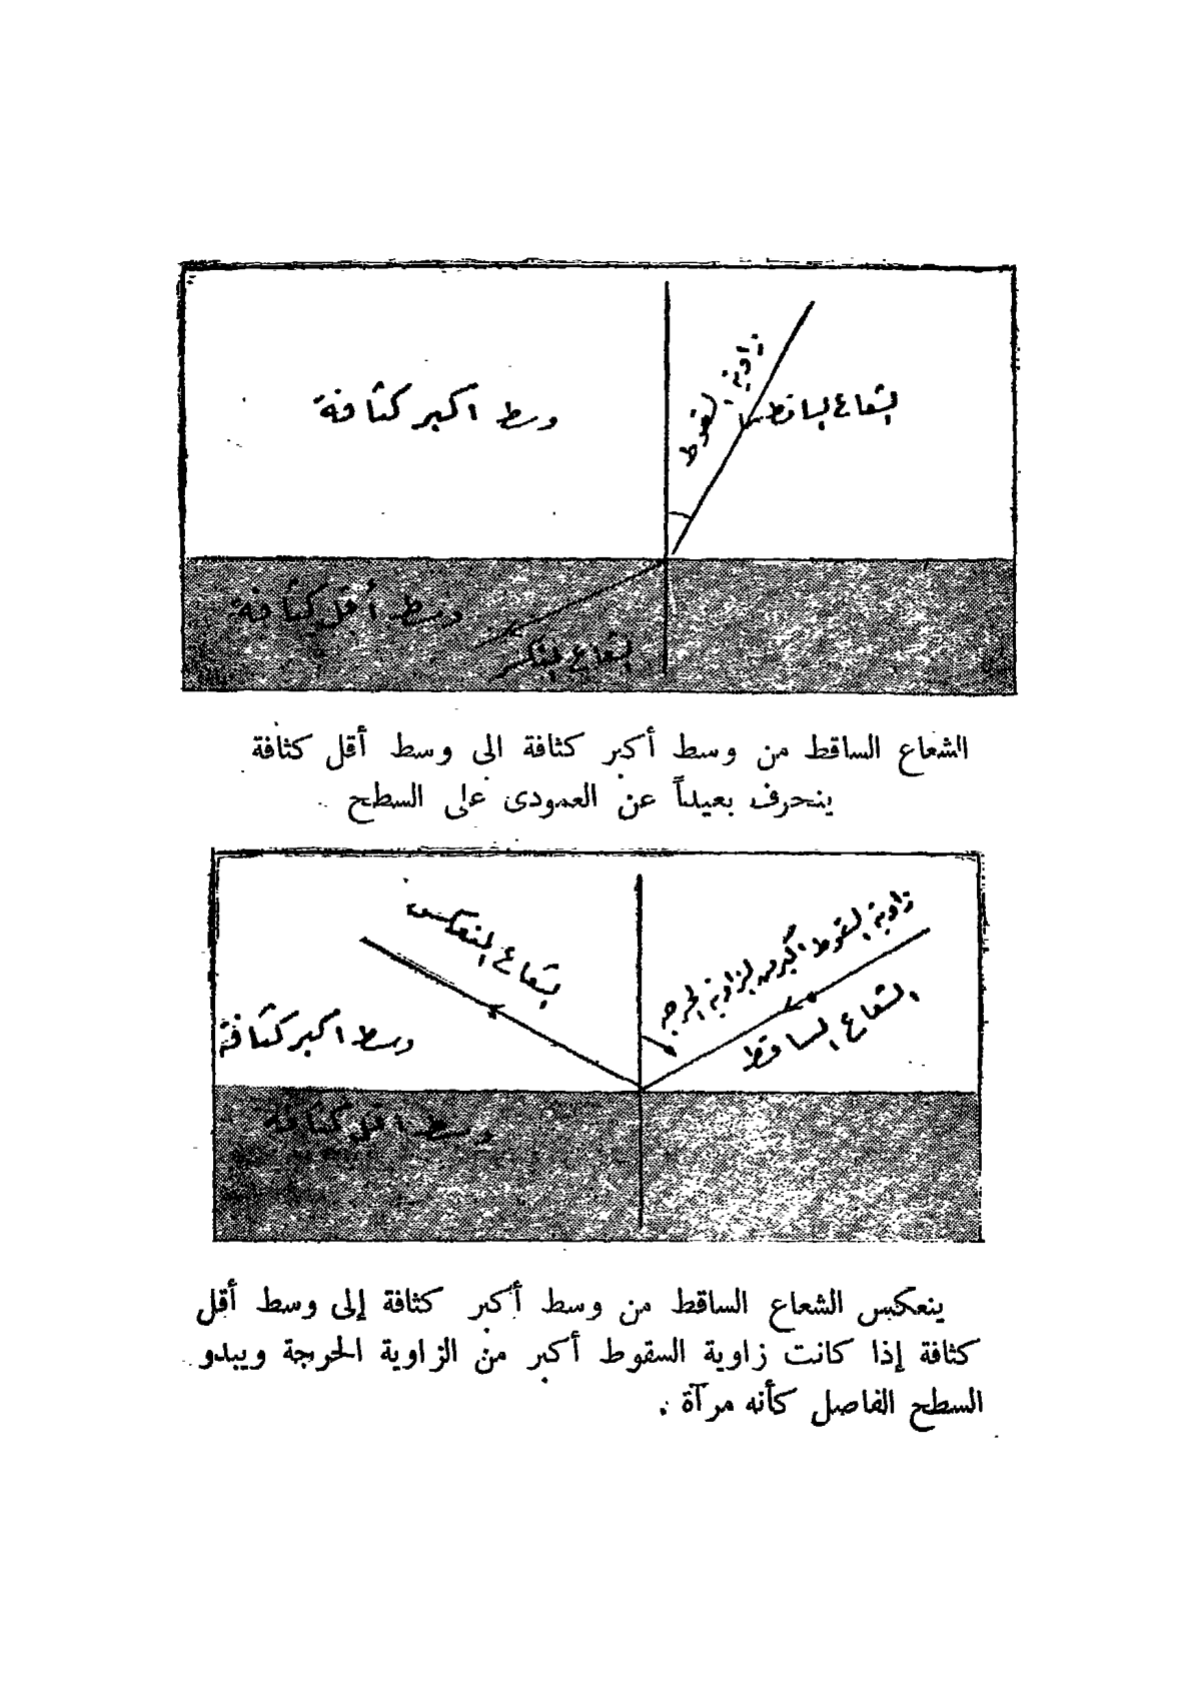 زاوية السقوط
الشعاع الساقط
وسط اكبر كثافة
وسط أقل كثافة
الشعاع المنكسر
الشعاع الساقط من وسط أكبر كثافة الى وسط أقل كثافة
ينحرف بعيداً عن العمودى على السطح
زاوية السقوط اكبر من الزاوية الحرجه
الشعاع المنعكس
الشعاع الساقط
وسط اكبر كثافة
وسط اقل كثافة
ينعكس الشعاع الساقط من وسط أكبر كثافة إلى وسط أقل
كثافة إذا كانت زاوية السقوط أكبر من الزاوية الحرجة ويبدو
السطح الفاصل كأنه مرآة .